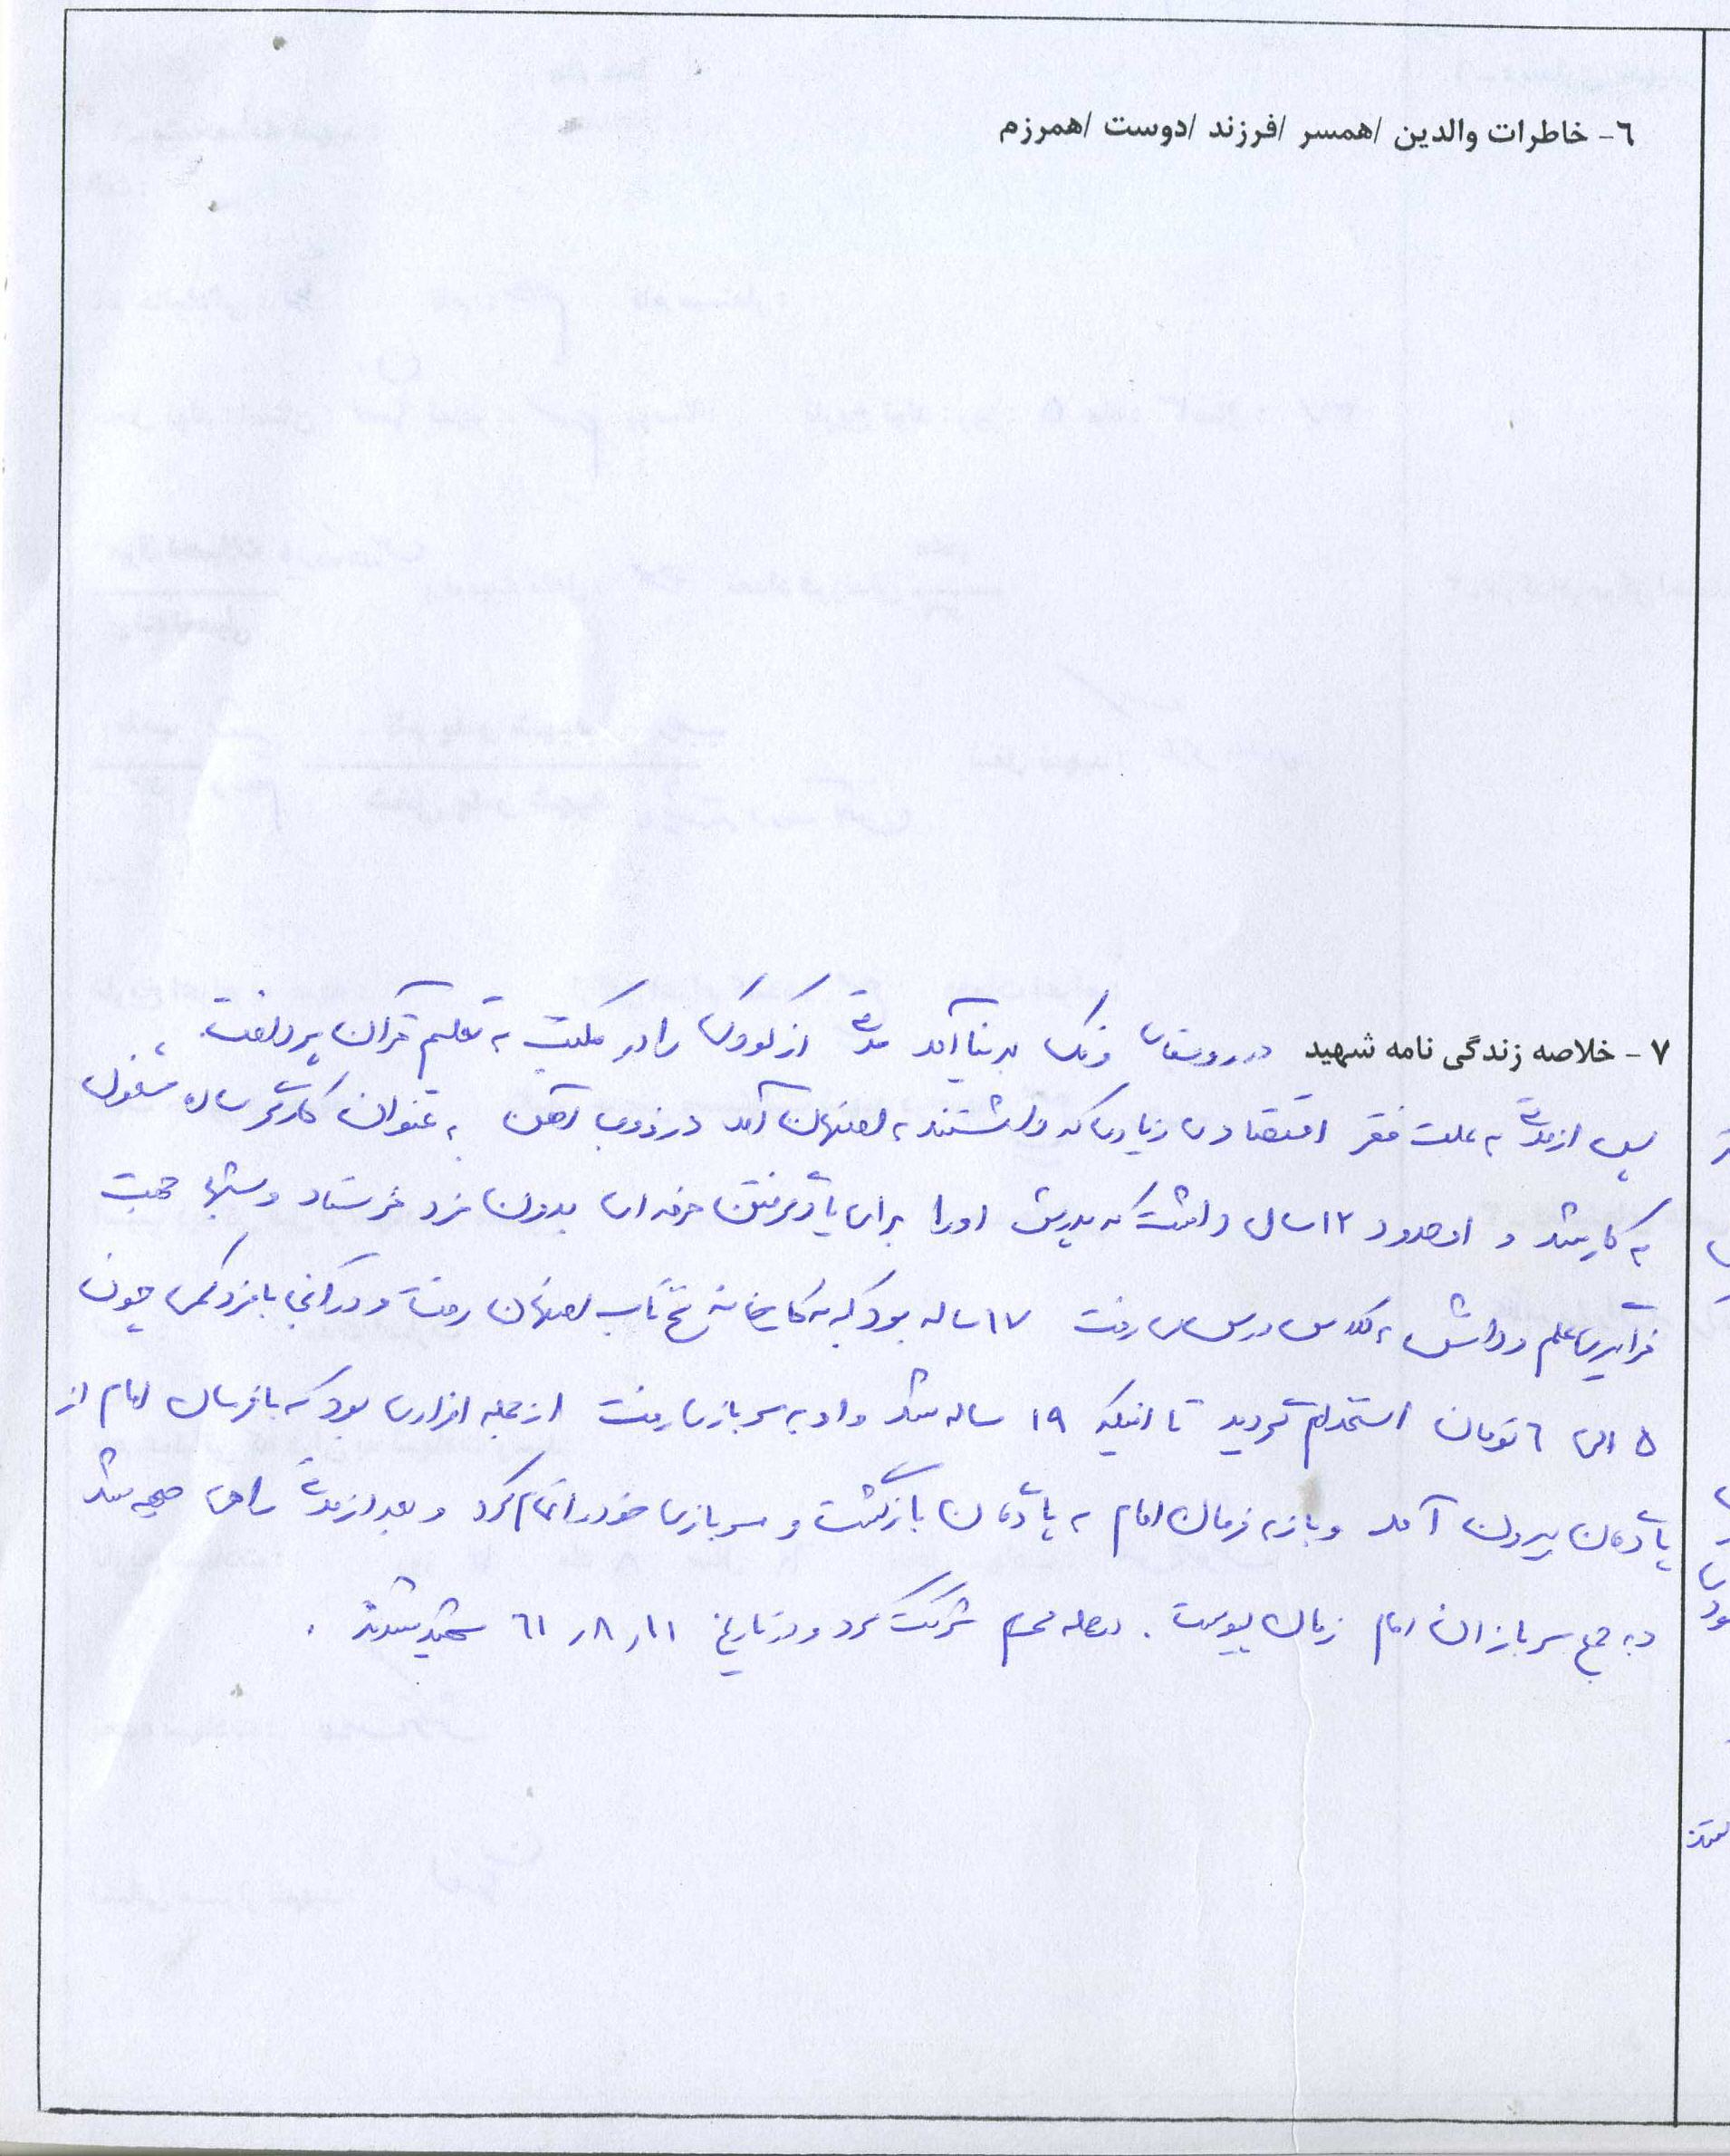 ٦- خاطرات والدین /همسر /فرزند /دوست /همرزم
٧- خلاصه زندگی نامه شهید در روستای ونک بدنیا آمد مدتی از کودکی را در مکتب به تعلیم قرآن پرداخت.
پس از مدتی به علت فقر اقتصادی زیادی که داشتند به اصفهان آمد در ذوب آهن به عنوان کارگر ساده مشغول
به کار شد و او حدود ١٢ سال داشت که پدرش او را برای یادگرفتن حرفه ای بدون مزد فرستاد و شبها جهت
فراگیری علم و دانش به کلاس درس می رفت ١٧ ساله بود که به کارخانه نخ تاب اصفهان رفت و در آنجا با مزد کمی چون
٥ الی ٦ تومان استخدام گردید تا اینکه ١٩ ساله شد و او به سربازی رفت از جمله افرادی بود که با فرمان امام از
پادگان بیرون آمد و باز به فرمان امام به پادگان بازگشت و سربازی خود را تمام کرد و بعد از مدتی راهی جبهه شد
و به جمع سربازان امام زمان پیوست. در حمله محرم شرکت کرد و در تاریخ ٦١/٨/١١ شهید شدند.